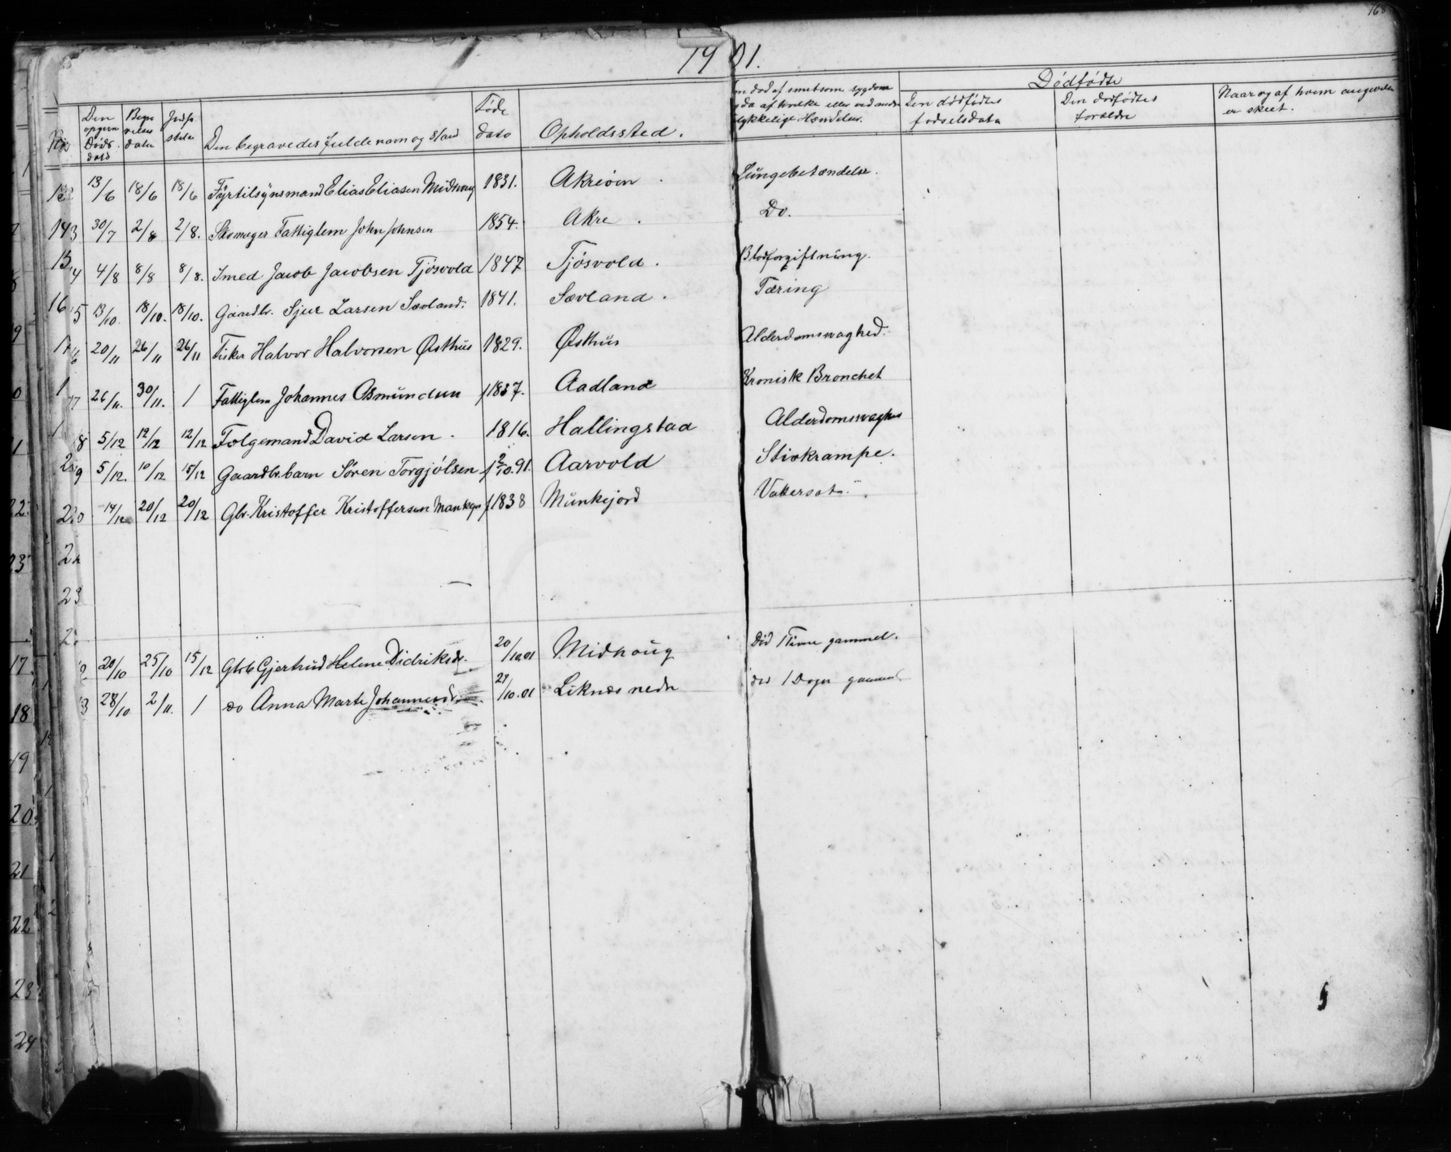 168
1901.
Den opgivne Døds dato
Begravelses dato
Jordfæstelse
Den begravedes fulde navn og Stand
Føde dato
Opholdssted.
død af smitsom sygdom
af Drukke eller ved anden
ulykkelige Hændelser.
Dødfødte
Den dødfødtes fødselsdata
Den dødfødtes forældre
Naar og af hvem angivelse er skeet.
13/6 18/6 18/6 Fyrtilsynsmand Elias Eliasen 1831. Akreøen. Lungebetændelse.
30/7 2/8 2/8. Skomager Fattiglem John Johnsen 1854. Akre. Do.
4/8 8/8 8/8. Smed Jacob Jacobsen Tjøsvold 1847 Tjøsvold. Blodforgiftning.
5 13/10. 18/10. 18/10. Gaardbr. Sjur Larsen Sævland. 1841. Sævland. Tæring
6 20/11 26/11 26/11 Fisker Halvor Halvorsen Østhus 1829. Østhus Alderdomsvaghed.
26/11. 30/11. / Fattiglem Johannes Osmundsen 1837. Aadland Kronisk Bronchet
8 5/12 12/12 12/12 Følgemand David Larsen. 1816. Hallingstad Alderdomsvaghed
9 5/12. 10/12 15/12 Gaardbr.barn Søren Torgjølsen 2/10.91. Aarvold Stivkrampe.
20 14/12 20/12 20/12 Gbr. Kristoffer Kristoffersen 1838 Munkejord Vattersot.
2 20/10 25/10 15/12 Gbrb Gjertrud Helene Didriksd. 20/10.01 Midhoug Død 1 Time gammel.
3 28/10 2/11. / do Anna Marte Johannesd. 27/10.01 Liknæs nedr 1 Døgn gammel